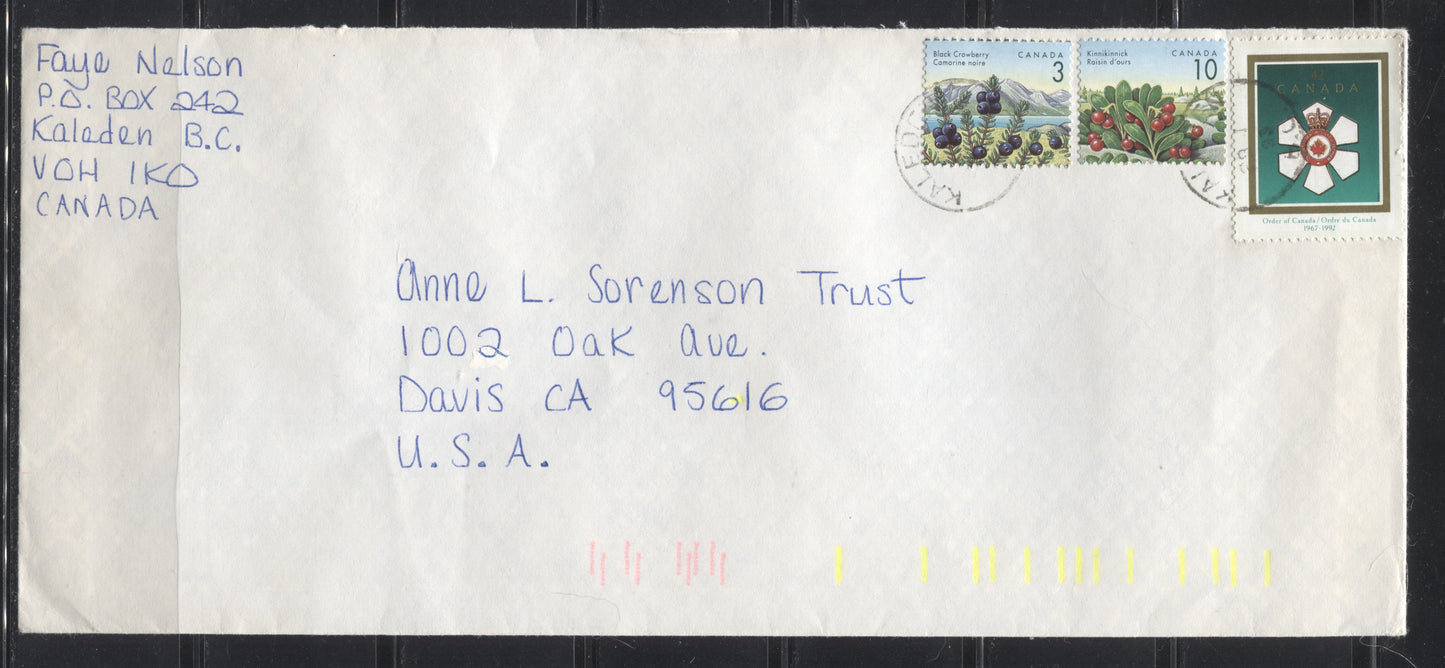 Faye Nelson
P.O. BOX 242
Kaleden B.C.
V0H 1K0
CANADA
Black Crowberry
Camarine noire
CANADA
3
Kinnikinnick
Raisin d'ours
CANADA
10
42
CANADA
Order of Canada / Ordre du Canada
1967-1992
KALED
KAL
Anne L. Sorenson Trust
1002 Oak Ave.
Davis CA 95616
U.S.A.